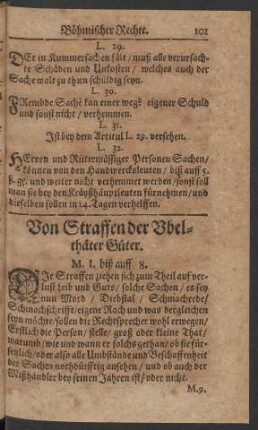 Böhmischer Rechte. 101
L. 29.
DEr in Kummersachen fält / muß alle verursach-
te Schäden und Unkosten / welches auch der
Sache walt zu thun schüldig seyn.
L. 30.
FRembde Sache kan einer wegē eigener Schuld
und sonst nicht / verhemmen.
L. 31.
Ist bey dem Articul L. 29. versehen.
L. 32.
HErren und Rittermässiger Personen Sachen /
können von den Handwercksleuten / biß auff 5.
ß. gr. und weiter nicht verhemmet werden / sonst soll
man sie bey den Kräyßhäuptleuten fürnehmen / und
dieselben sollen in 14. Tagen verhelffen.
Von Straffen der Vbel-
thäter Güter.
M. 1. biß auff 8.
DIe Straffen ziehen sich zum Theil auf ver-
lust Leib und Guts / solche Sachen / es sey
nun Mord / Diebstal / Schmachrede /
Schmachschrifft / eigene Rach und was dergleichen
seyn möchte / sollen die Rechtsprecher wohl erwegen /
Erstlich die Person / stelle / groß oder kleine That /
warumb / wie und wann er solchs gethan / ob sie für-
setzlich / oder also alle Umbstände und Beschaffenheit
der Sachen nothdürfftig ansehen / und ob auch der
Mißhändler bey seinen Jahren ist / oder nicht.
M. 9.